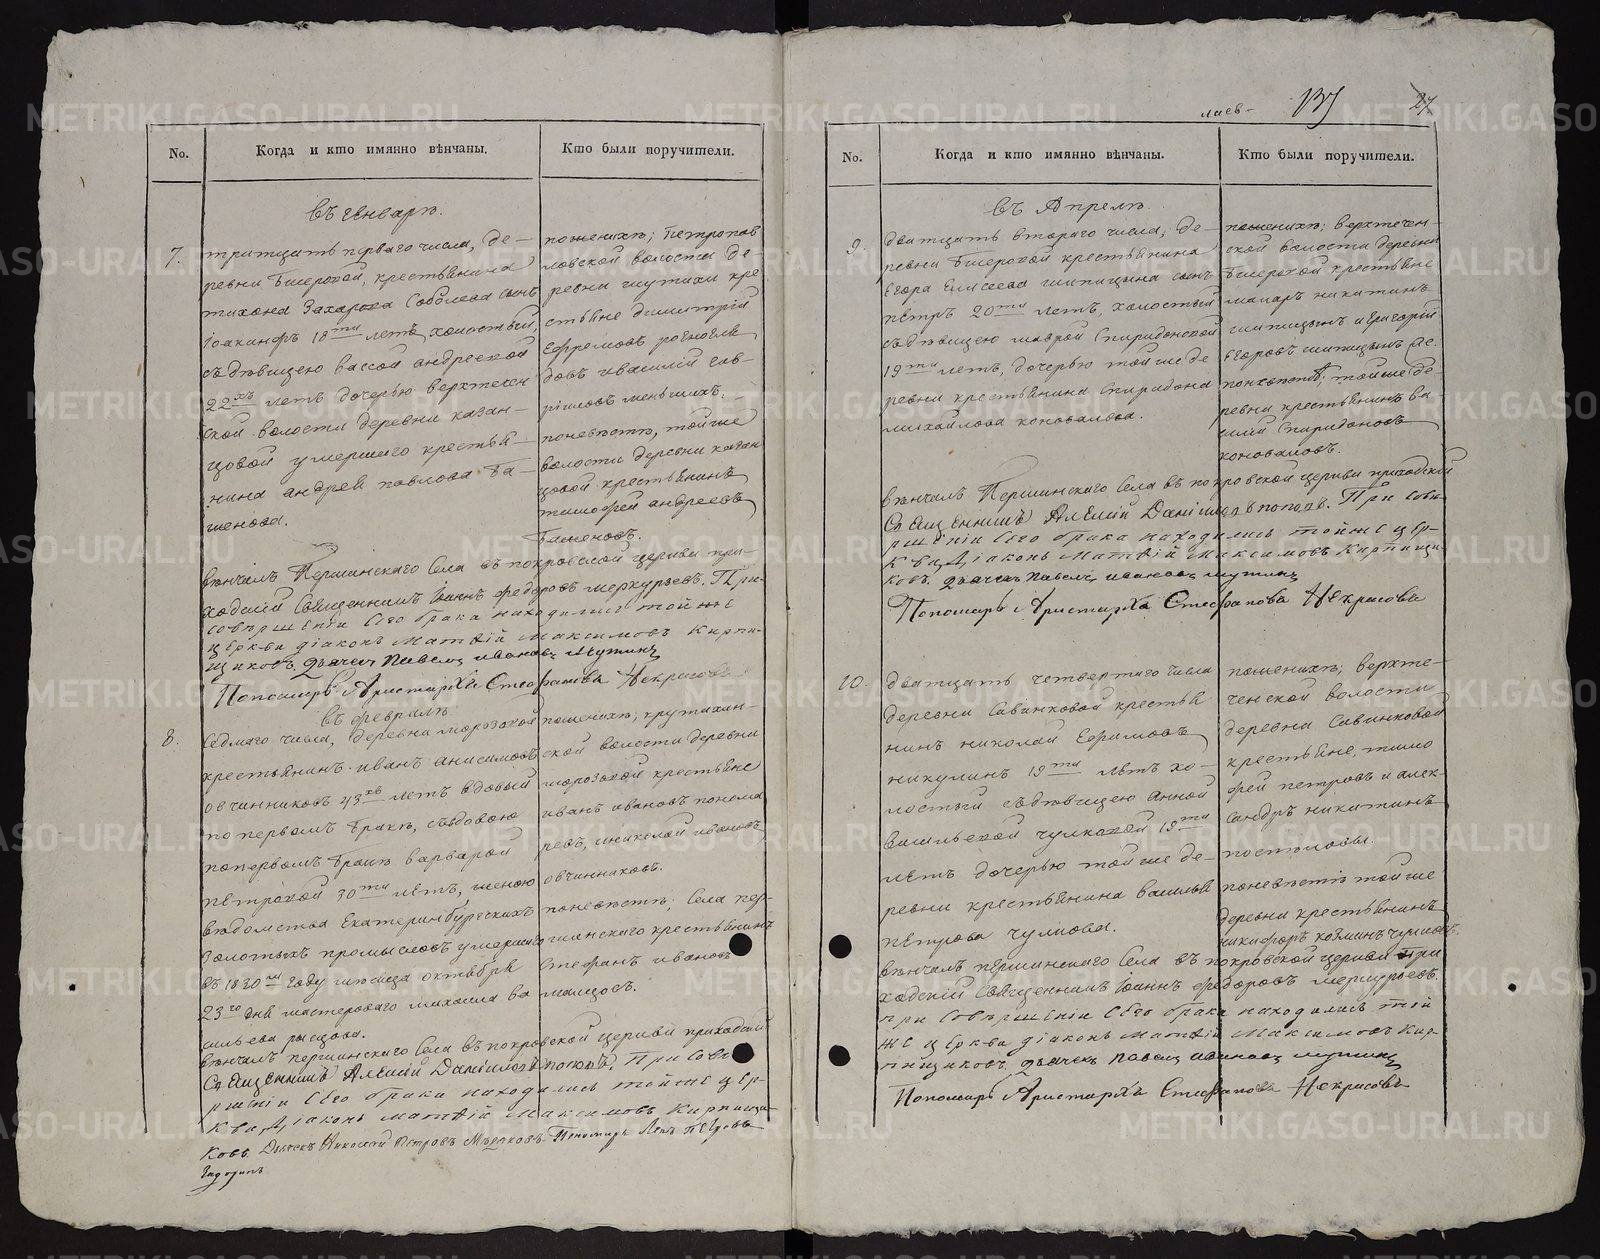 No. Когда и кто имянно вѣнчаны. Кто были поручители.
въ Генварѣ.
7. тритцать перваго числа, де-
ревни Бисеровой, крестьянина
тихона Захарова Соболева сынъ
Іоакинфъ 18ти летъ холостый,
съ дѣвицею вассой андреевой
22хъ летъ дочерью верхтечен
ской волости деревни казан-
цовой умершаго крестья-
нина андрея павлова Ба-
женова.
по женихѣ; Петропав
ловской волости де-
ревни шутихи кре
стьяне димитрій
Ефремовъ
и василій гав-
риловъ меньшихъ.
по невѣстѣ, той же
волости деревни казан
цовой крестьянинъ
тимофей андреевъ
Баженовъ.
вѣнчалъ Першинскаго Села въ покровской церкви при-
ходскій Священникъ Іоаннъ федоровъ меркурьевъ. При
совѣршеніи Сего брака находились той же
цЕркви діаконъ Матѳій Максимовъ Кирпи-
щиковъ. дьячекъ Павелъ ивановъ мутинъ
Пономарь Аристархъ Стефановъ Некрасовъ
въ февралѣ
8. Седмаго числа, деревни морозовой
крестьянинъ иванъ анисимовъ
овчинниковъ 43хъ летъ вдовый
по первомъ бракѣ, съ вдовою
по первомъ бракѣ варварой
пЕтровой 30ти лѣтъ, женою
вѣдомства Екатеринбургскихъ
Золотыхъ промысловъ умершаго
въ 1830м году месяца октября
23го дня мастероваго михаила ва
сильева рысцова.
по женихѣ; крутихин-
ской волости деревни
морозовой крестьяне
иванъ ивановъ понома
ревъ, и николай ивановъ
овчинниковъ.
по невѣстѣ; Села пер-
шинскаго крестьянинъ
Стефанъ ивановъ
вѣнчалъ першинскаго Села въ покровской церкви приходскій
СвЯщЕнникъ АлЕксій Даніиловъ поповъ. При Совѣ-
ршЕніи сЕго брака находились той же цЕр-
кви, Діаконъ матѳій Максимовъ Кирпищи-
ковъ. Дьячекъ Николай Петровъ Мѣдяковъ Пономарь Левъ пЕтровъ
No. Когда и кто имянно вѣнчаны. Кто были поручители.
27
въ Апрелѣ.
9. двадцать втораго числа, де-
ревни Бисеровой крестьянина
Егора Елисеева шипицына сынъ
пЕтръ 20ти летъ, холостый
съ дѣвицею маврой Спиридоновой
19ти летъ, дочерью той же де
ревни крестьянина Спиридона
михайлова коновалова.
по женихѣ; верхтечен-
ской волости деревни
Бисеровой крестьяне
макаръ никитинъ
шипицынъ и григорій
Егоровъ шипицынъ
по невѣстѣ; той же де-
ревни крестьянинъ ва-
силій Спиридоновъ
коноваловъ.
вѣнчалъ Першинскаго Села въ покровской церкви приходскій
СвЯщЕнникъ АлЕксій Даніиловъ поповъ. При Совѣ-
ршЕніи сЕго брака находились той же цЕр-
кви, Діаконъ матѳій Максимовъ Кирпищи-
ковъ. дьячекъ Павелъ ивановъ мутинъ
Пономарь Аристархъ Стефановъ Некрасовъ
10. двадцать четвертаго числа
деревни Савинковой крестья
нинъ николай Ефимовъ
никулинъ 19ти лѣтъ хо-
лостый съ дѣвицею Анной
васильевой чулковой 19ти
лѣтъ дочерью той же де-
ревни крестьянина василья
пЕтрова чулкова.
по женихѣ; верхте-
ченской волости
деревни Савинковой
крестьяне, тимо
фей петровъ и алек-
сандръ никитинъ
постоловы.
по невѣстѣ той же
деревни крестьянинъ
никифоръ козминъ чулковъ.
вѣнчалъ пЕршинскаго Села въ покровской церкви При
ходскій Священникъ Іоаннъ федоровъ меркурьевъ.
при совѣршЕніи сЕго брака находились той
же цЕркви діаконъ матѳій Максимовъ Кир-
пищиковъ, дьячекъ Павелъ ивановъ мутинъ
Пономарь Аристархъ Стефановъ Некрасовъ